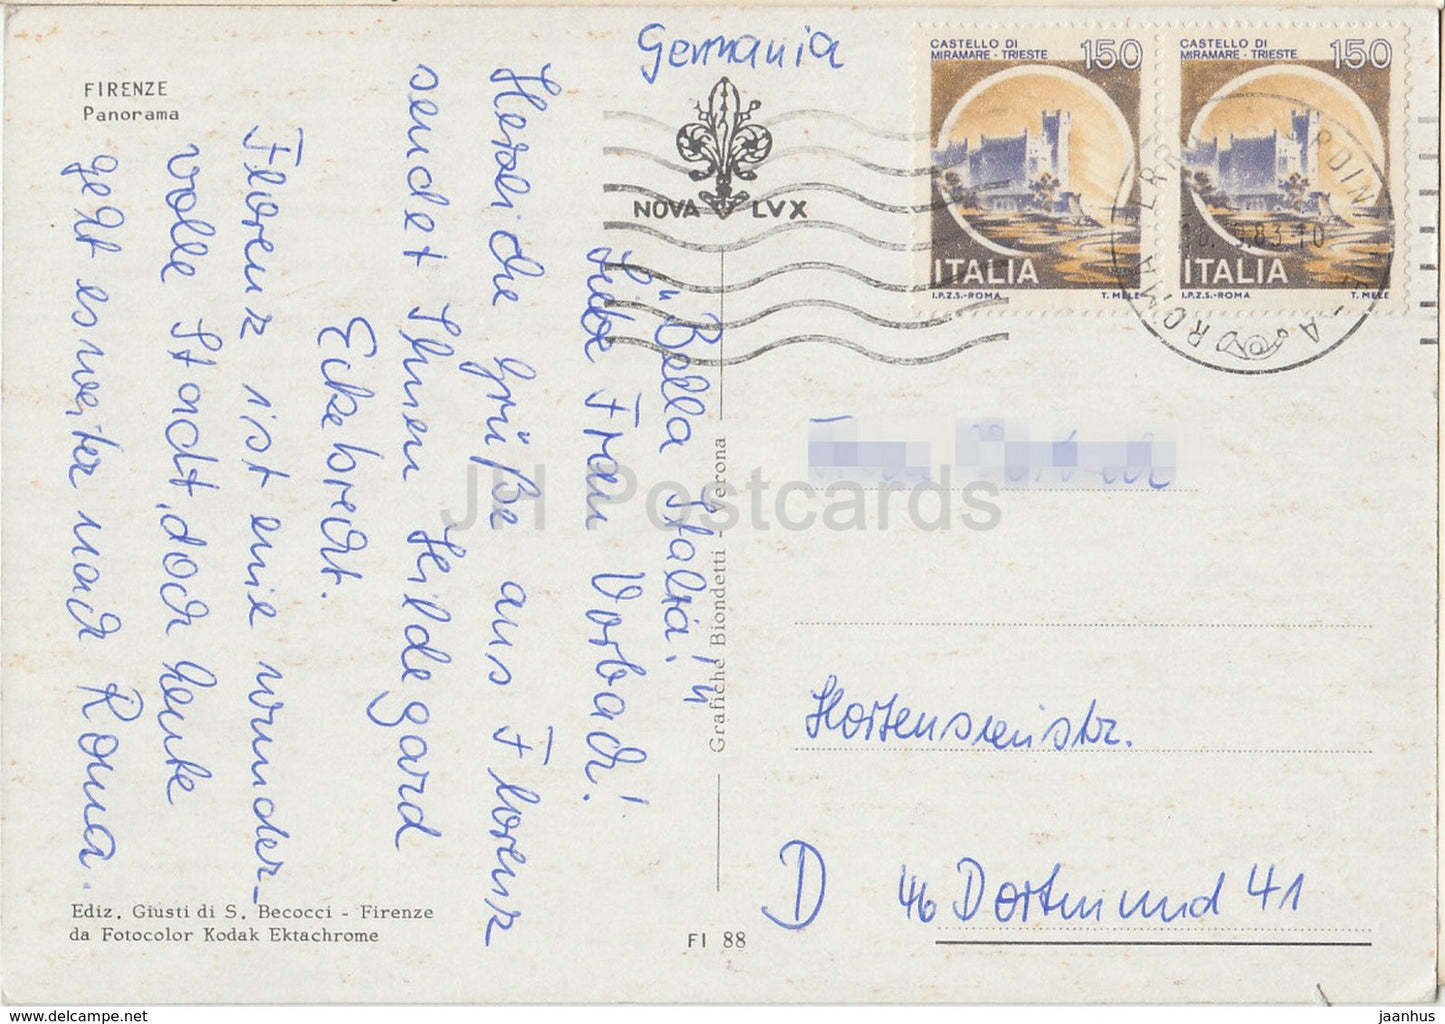 Germania
FIRENZE
Panorama
NOVA LVX
CASTELLO DI
MIRAMARE - TRIESTE
150
ITALIA
I.P.Z.S.-ROMA
T. MELE
CASTELLO DI
MIRAMARE - TRIESTE
150
ITALIA
I.P.Z.S.-ROMA
T. MELE
"Bella Italia!"
Liebe Frau Vorbach!
Herzliche Grüße aus Florenz
sendet Ihnen Hildegard
Eckebrecht.
Florenz ist eine wunder-
volle Stadt, doch heute
geht es weiter nach Roma.
Grafiche Biondetti - Verona
Hortensienstr.
D 46 Dortmund 41
Ediz. Giusti di S. Becocci - Firenze
da Fotocolor Kodak Ektachrome
FI 88
JH Postcards
www.delcampe.net
jaanhus